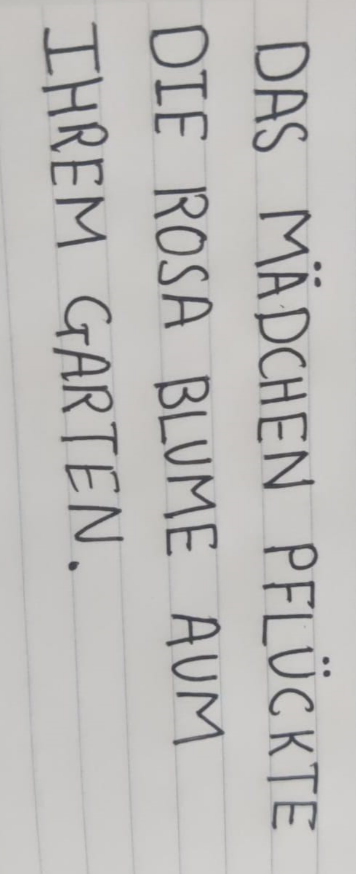 DAS MÄDCHEN PFLÜCKTE
DIE ROSA BLUME AUM
IHREM GARTEN.